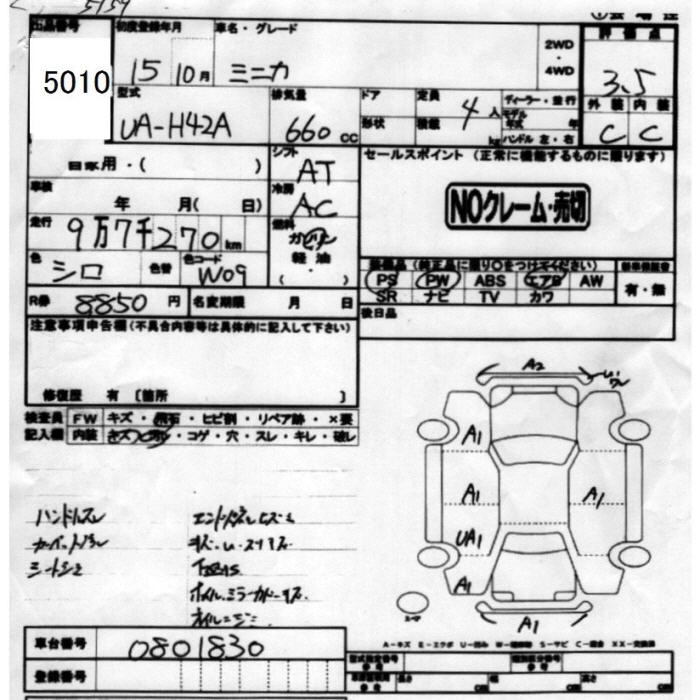 出品番号 初度登録年月 車名・グレード 2WD・4WD 評価点
5010 15 10月 ミニカ 3.5
型式 排気量 ドア 定員 ディーラー・並行 外装 内装
UA-H42A 660cc 形状 積載 4人 kg モデル年式 年 ハンドル 左・右 C C
自家用・( ) シフト AT セールスポイント (正常に機能するものに限ります)
車検 年 月( 日) 冷房 AC NOクレーム・売切
走行 9万7千270km 燃料 ガソリン
色 シロ 色替 色コード W09 軽油・( )
装備品 (純正品に限り○をつけてください) 新車保証書
PS PW ABS エアB AW 有・無
SR ナビ TV カワ
R券 8850円 名変期限 月 日 後日品
注意事項申告欄(不具合内容等は具体的に記入して下さい)
修復歴 有 [箇所 ]
検査員 FW キズ・飛石・ヒビ割・リペア跡・×要
記入欄 内装 キズ・コゲ・穴・スレ・キレ・破レ
A2
A1
A1 A1
UA1
A1
A1
ハンドルスレ
シートシミ
車台番号 0801830
登録番号
A-キズ E-エクボ U-凹み W-補修跡 S-サビ C-腐食 XX-交換済
型式指定番号 類別区分番号
長さ cm 幅 cm 高さ cm